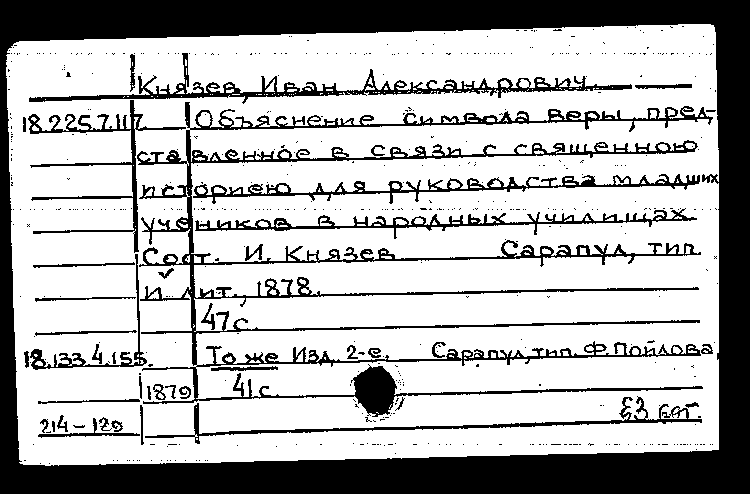 Князев, Иван Александрович.
18.225.7.117. Объяснение символа веры, пред-
ставленное в связи с священною
историею для руководства младших
учеников в народных училищах.
Сост. И. Князев Сарапул, тип.
и лит., 1878.
47 с.
18.133.4.155. То же Изд. 2-е. Сарапул, тип. Ф. Пойлова,
1879 41 с.
214-120